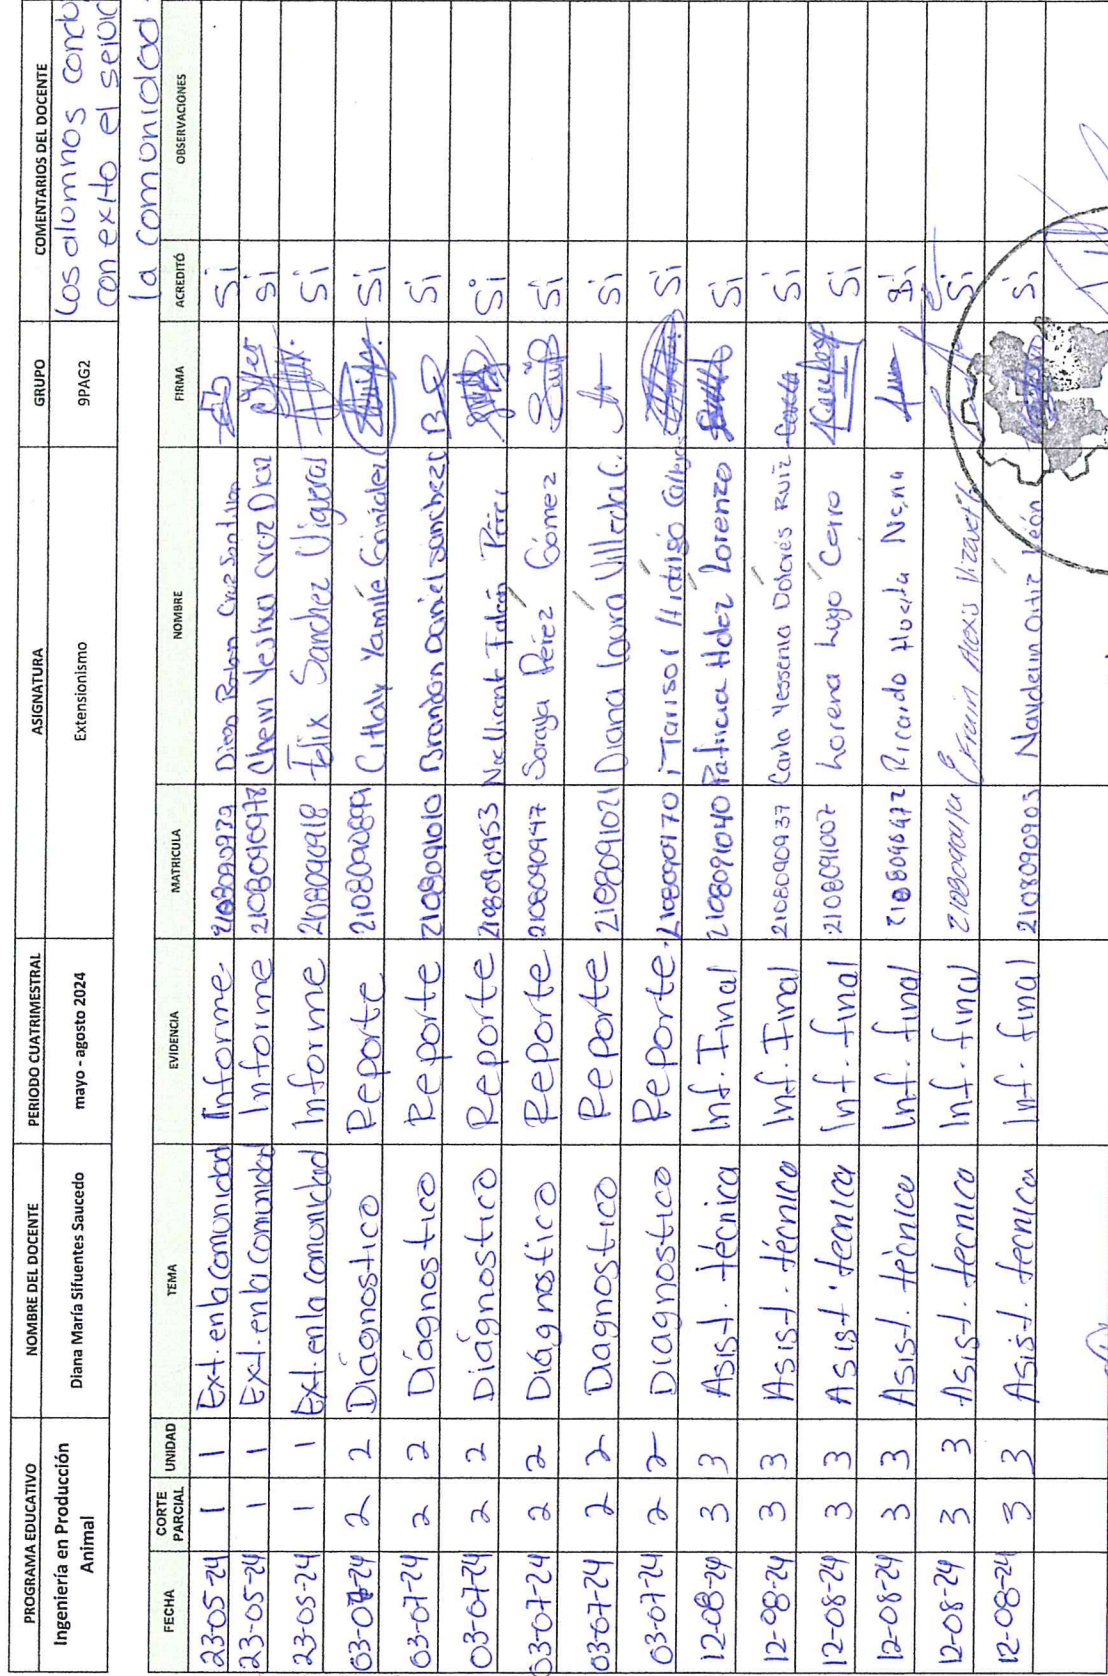 PROGRAMA EDUCATIVO NOMBRE DEL DOCENTE PERIODO CUATRIMESTRAL ASIGNATURA GRUPO COMENTARIOS DEL DOCENTE
Ingeniería en Producción Animal Diana María Sifuentes Saucedo mayo - agosto 2024 Extensionismo 9PAG2 Los alumnos
con exito el
la comunidad
FECHA CORTE PARCIAL UNIDAD TEMA EVIDENCIA MATRICULA NOMBRE FIRMA ACREDITÓ OBSERVACIONES
23-05-24 1 1 Ext. en la Comunidad Informe Si
23-05-24 1 1 Ext. en la Comunidad Informe 2108090978 Cruz Diaz Si
23-05-24 1 1 Ext. en la Comunidad Informe Felix Sanchez Si
03-07-24 2 2 Diagnostico Reporte 2108090899 Citlaly Yamile Si
03-07-24 2 2 Diagnostico Reporte 2108091010 Brandon Daniel Sanchez Si
03-07-24 2 2 Diagnostico Reporte 2108090953 Si
03-07-24 2 2 Diagnostico Reporte 2108090997 Soraya Pérez Gómez Si
03-07-24 2 2 Diagnostico Reporte 2108091021 Diana Laura Villeda C. Si
03-07-24 2 2 Diagnostico Reporte Hidalgo Si
12-08-24 3 3 Asist. técnica Inf. Final 2108091040 Patricia Hdez Lorenzo Si
12-08-24 3 3 Asist. técnica Inf. Final 2108090937 Carla Yessenia Dolores Ruiz Si
12-08-24 3 3 Asist. tecnica Inf. final 2108091007 Lorena Lugo Cerro Si
12-08-24 3 3 Asist. técnica Inf. final Ricardo Si
12-08-24 3 3 Asist. tecnica Inf. final Efrain Alexis Si
12-08-24 3 3 Asist. tecnica Inf. final 2108090903 Ortiz León Si